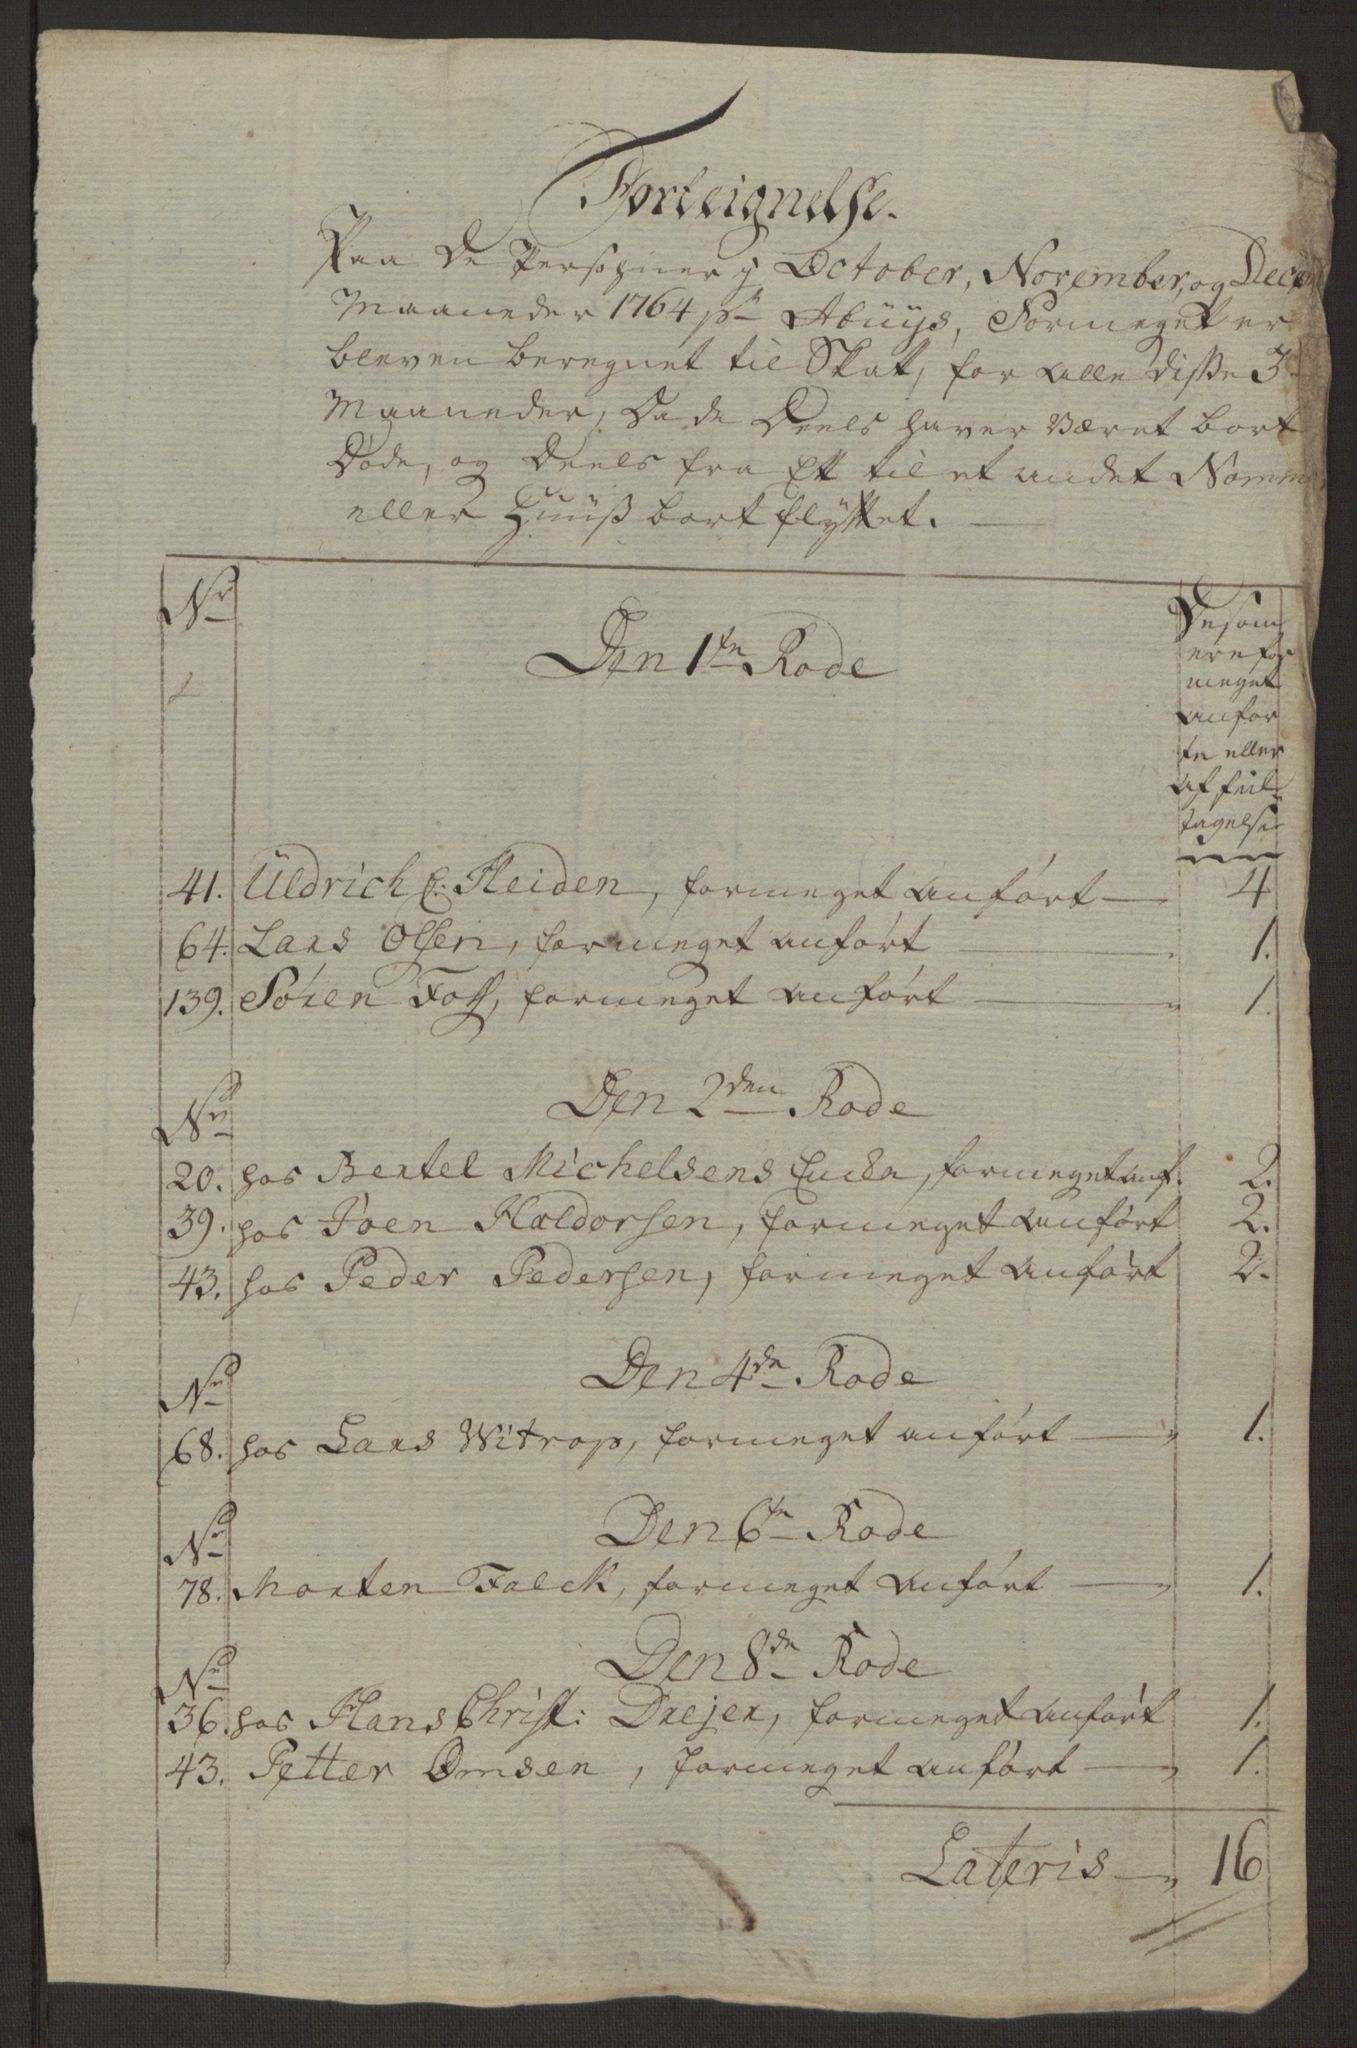 Forteignelse.
Paa De Persohner i October, November, og Decem
Maaneder 1764 pr Abuus, Formeget er
bleven beregnet til Skat, for alle diße 3
Maaneder, Da de Deels haver Været bort
Døde, og Deels fra Ett til et andet Nomm
eller Huuß bort flyttet.
Nr
Den 1te Rode
De som
ere for
meget
anfør
te eller
af feil
tagelse
41. Uldrich C: Heiden, formeget anført 4
64. Lars Olsen, formeget anført 1.
139. Sören Foss, formeget anført 1.
Den 2den Rode
Nr
20. hos Bertel Michelsens Encke, formeget anf. 2.
39. hos Joen Haldorsen, formeget anført 2.
43. hos Peder Pedersen, formeget anført 2.
Den 4de Rode
Nr
68. hos Lars Witrop, formeget anført 1.
Den 6te Rode
Nr
78. Morten Falck, formeget anført 1.
Den 8de Rode
Nr
36. hos Hans Christ: Drejer, formeget anført 1.
43. Petter Omsen, formeget anført 1.
Lateris 16